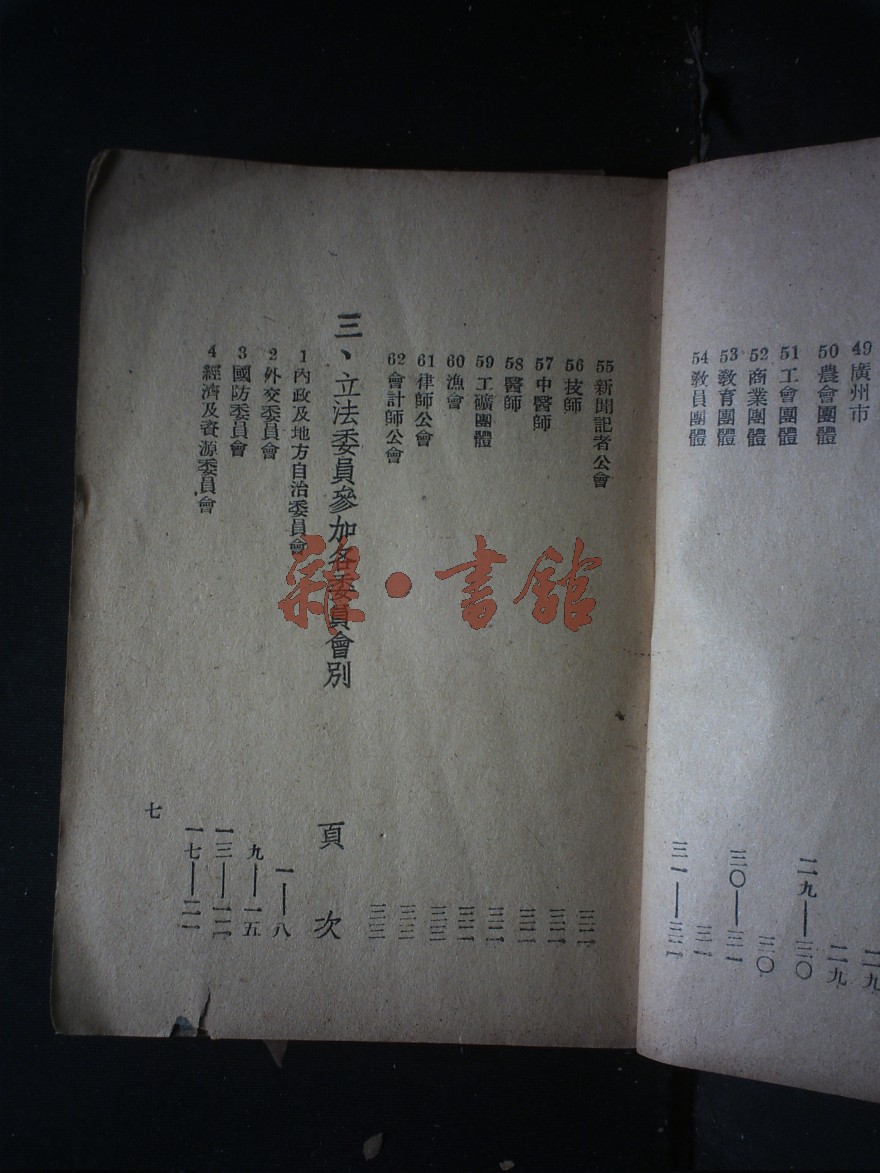 二九
49 廣州市 二九
50 農會團體 二九—三〇
51 工會團體 三〇
52 商業團體 三〇—三一
53 教育團體 三一
54 教員團體 三一—三二
55 新聞記者公會 三二
56 技師 三二
57 中醫師 三二
58 醫師 三二
59 工礦團體 三二
60 漁會 三三
61 律師公會 三三
62 會計師公會 三三
三、立法委員參加各委員會別 頁次
1 內政及地方自治委員會 一—八
2 外交委員會 九—一五
3 國防委員會 一三—
4 經濟及資源委員會 一七—二一
七
雜·書館